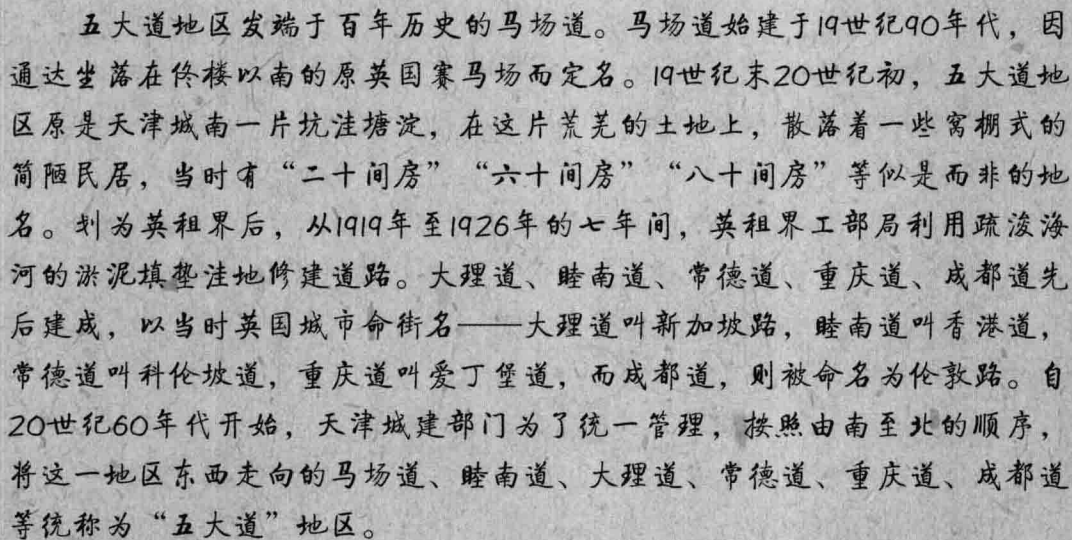 五大道地区发端于百年历史的马场道。马场道始建于19世纪90年代，因
通达坐落在佟楼以南的原英国赛马场而定名。19世纪末20世纪初，五大道地
区原是天津城南一片坑洼塘淀，在这片荒芜的土地上，散落着一些窝棚式的
简陋民居，当时有“二十间房”“六十间房”“八十间房”等似是而非的地
名。划为英租界后，从1919年至1926年的七年间，英租界工部局利用疏浚海
河的淤泥填垫洼地修建道路。大理道、睦南道、常德道、重庆道、成都道先
后建成，以当时英国城市命街名——大理道叫新加坡路，睦南道叫香港道，
常德道叫科伦坡道，重庆道叫爱丁堡道，而成都道，则被命名为伦敦路。自
20世纪60年代开始，天津城建部门为了统一管理，按照由南至北的顺序，
将这一地区东西走向的马场道、睦南道、大理道、常德道、重庆道、成都道
等统称为“五大道”地区。